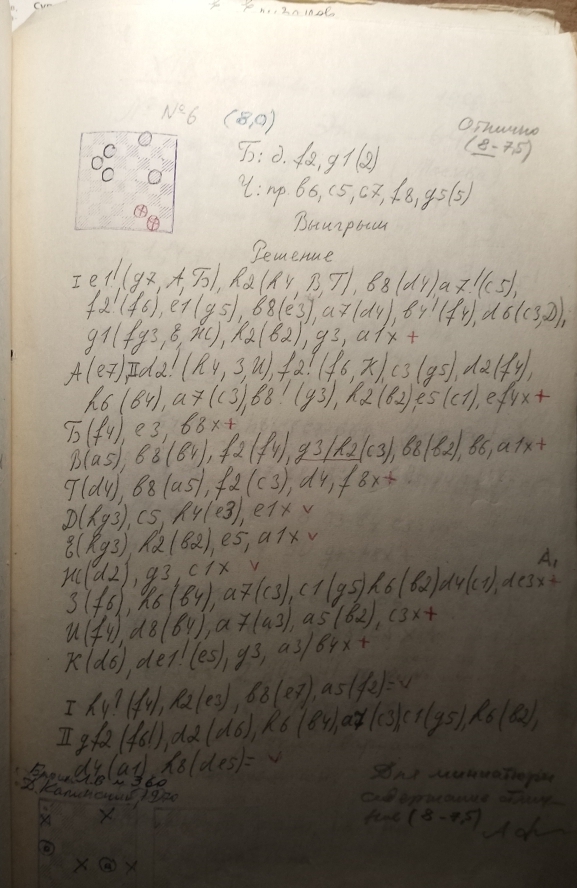 №6 (8,0)
Отлично
(8-7,5)
Б: д. f2, g1(2)
Ч: пр. b6, c5, c7, f8, g5(5)
Выигрыш
Решение
I e1! (g7, А, Б), h2 (h4, В, Г), b8 (d4) a7! (c5),
f2! (f6), e1 (g5), b8 (e3), a7 (d4), b4! (f4), d6 (c3, Д),
g1 (fg3, Е, Ж), h2 (b2), g3, a1x +
А (e7) II d2! (h4, З, И), f2! (f6, К), c3 (g5), d2 (f4),
h6 (b4), a7 (c3), b8! (g3), h2 (b2), e5 (c1), ef4x +
Б (f4), e3, b8x +
В (a5), b8 (b4), f2 (f4), g3/h2 (c3), b8 (b2), b6, a1x +
Г (d4), b8 (a5), f2 (c3), d4, f8x +
Д (hg3), c5, h4 (e3), e1x v
Е (hg3) h2 (b2), e5, a1x v
Ж (d2), g3, c1x v
А1
З (f6), h6 (b4), a7 (c3), c1 (g5) h6 (b2) d4 (c1), de3x +
И (f4), d8 (b4), a7 (a3), a5 (b2), c3x +
К (d6), de1! (e5), g3, a3/b4x +
I h4? (f4), h2 (e3), b8 (e7), a5 (f2) = v
II gf2 (f6!), d2 (d6), h6 (b4), a7 (c3) c1 (g5), h6 (b2),
d4 (a1), h8 (de5) = v
Д. Калинский, 1970
Для миниатюры
содержание отлич-
ное (8-7,5)